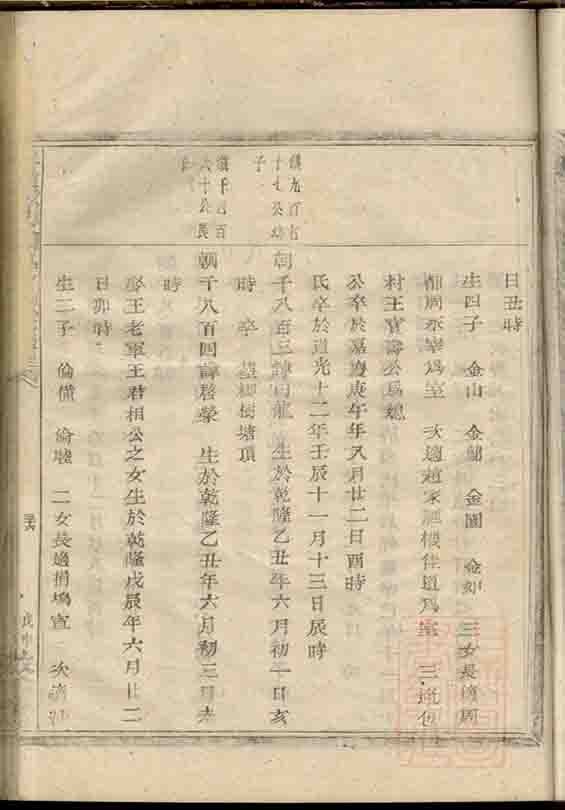 日丑時
生四子 金山 金 金圖 金 三女長適周
都周 為室 次適趙家 樓佳道為室 三 適包
村王寶壽公為媳
公卒於嘉慶庚午年又月廿二日酉時
氏卒於道光十二年壬辰十一月十三日辰時
朝千八百三 諱曰龍 生於乾隆乙丑年六月初一日亥
時 卒 塟 樹塘頂
朝千八百四諱啓榮 生於乾隆乙丑年六月初三日未
時
娶王老軍王君相公之女生於乾隆戊辰年六月廿二
日卯時
生二子 倫 倫 二女長適 塢宣 次適
慎九百有
十七公幼
子
慎千四百
六十公長